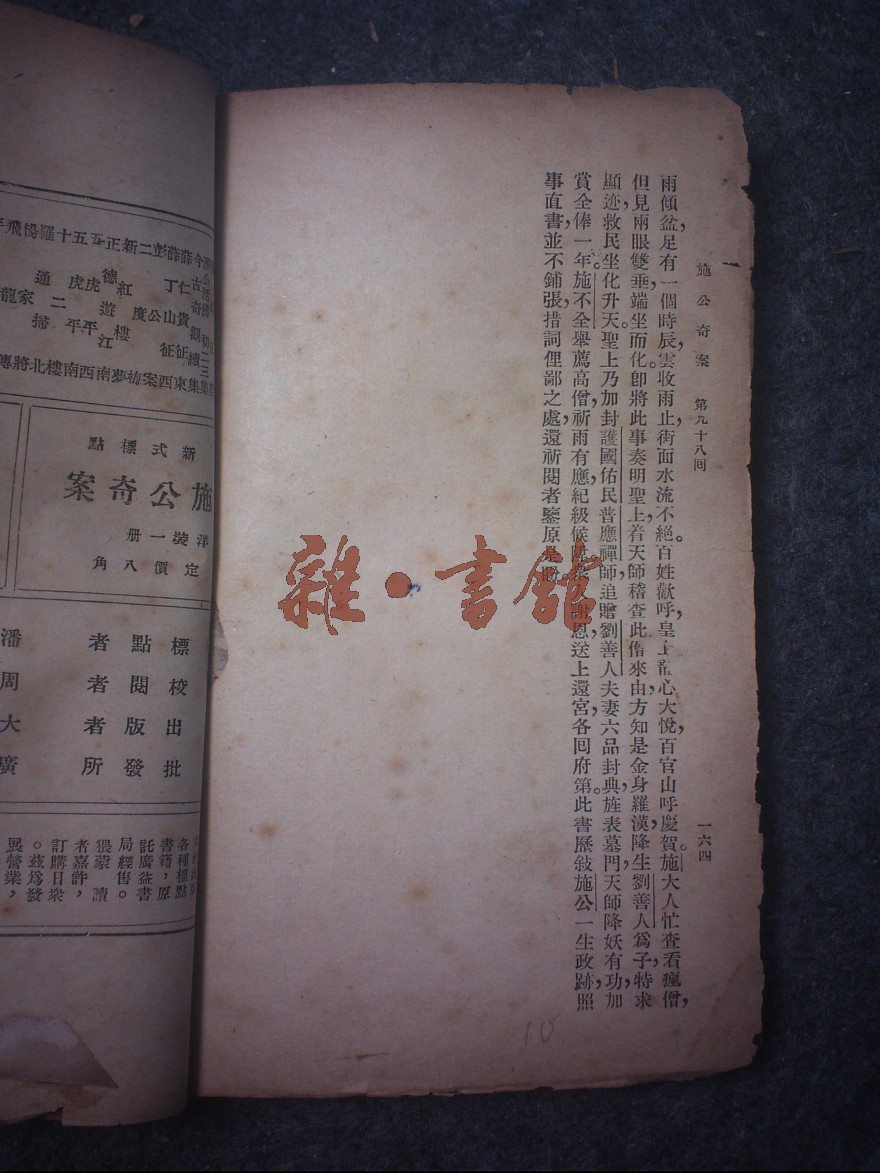 施公奇案 第九十八回 一六四
雨傾盆,足有一個時辰,雲收雨止,街面水流不絕。百姓歡呼,皇上龍心大悅,百官山呼慶賀。施大人忙查看瘋僧,
但見兩眼雙垂,端坐而化。卽將此事奏明聖上,着天師稽查此僧來由,方知是金身羅漢,降生劉善人爲子,特求
顯迹救民,坐化升天。聖上乃加封護國佑民普應禪師,追贈劉善人夫妻六品封典,旌表墓門,天師降妖有功,加
賞全俸一年。施不全舉薦高僧,祈雨有應,紀級候陞。衆人謝恩,送上還宮,各回府第。此書歷敍施公一生政跡,照
事直書,並不鋪張,措詞俚鄙之處,還祈閱者鑒原是盼
雜·書館
10
新式標點
施公奇案
洋裝一册
定價八角
標點者 潘
校閱者 周
出版者 大
批發所 廣
各種標點
書籍,原
託廣益書
局經售。
猥蒙讀
者嘉許,
訂購日衆
。茲爲發
展營業,